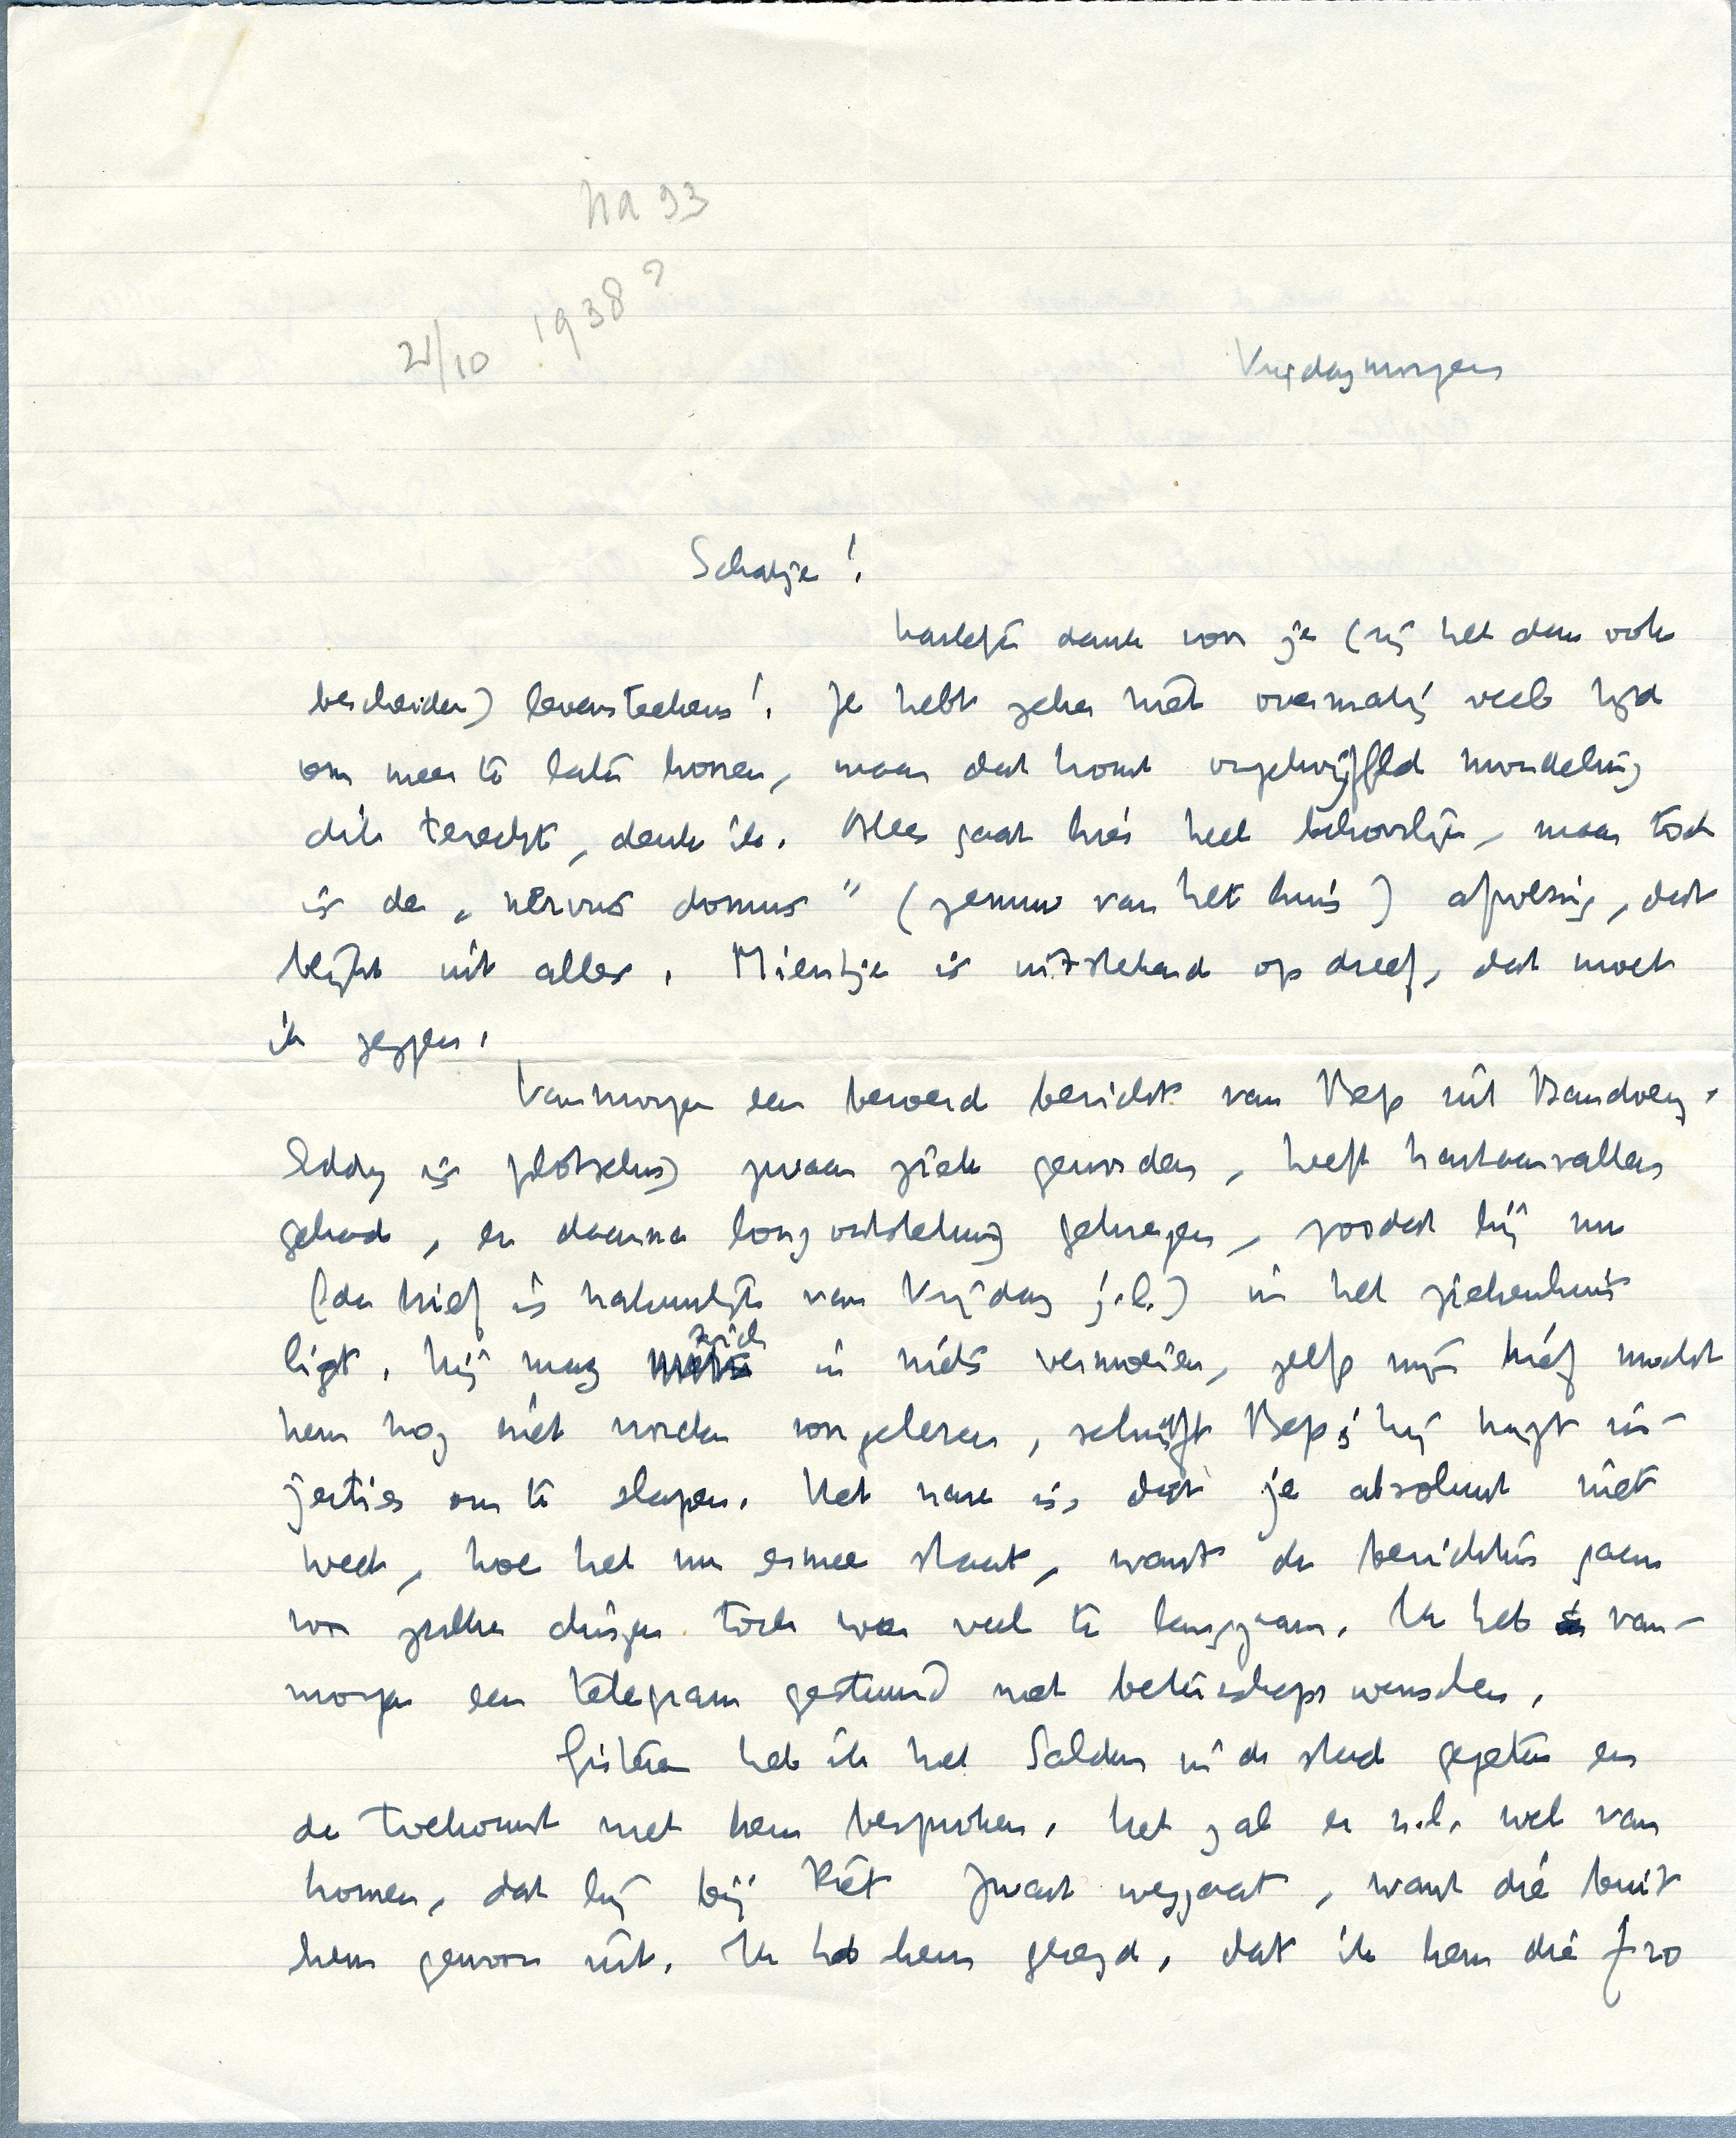 na 93
21/10 1938?
Vrijdagmorgen
Schatje!
hartelijk dank voor je (zij het dan ook
bescheiden) levensteeken! Je hebt zeker niet overmatig veel tijd
om meer te laten hooren, maar dat komt ongetwijffeld mondeling
dik terecht, denk ik. Alles gaat hier heel behoorlijk, maar toch
is de „nervus domus" (zenuw van het huis) afwezig, dat
blijkt uit alles. Mientje is uitstekend op dreef, dat moet
ik zeggen.
Vanmorgen een beroerd bericht van Bep uit Bandoeng.
Eddy is plotseling zwaar ziek geworden, heeft hartaanvallen
gehad, en daarna longontsteking gekregen, zoodat hij nu
(de brief is natuurlijk van Vrijdag j.l.) in het ziekenhuis
ligt. hij mag zich in niets vermoeien, zelfs mijn brief mocht
hem nog niet worden voorgelezen, schrijft Bep; hij krijgt in-
jecties om te slapen. Het nare is, dat je absoluut niet
weet, hoe het nu ermee staat, want de berichten gaan
voor zulke dingen toch veel te langzaam. Ik heb van-
morgen een telegram gestuurd met beterschapswenschen.
Gisteren heb ik met Selden in de stad gegeten en
de toekomst met hem besproken. het zal er n.l. wel van
komen, dat hij bij Piet Zwart weggaat, want die buit
hem gewoon uit. Ik heb hem gezegd, dat ik hem die f 20